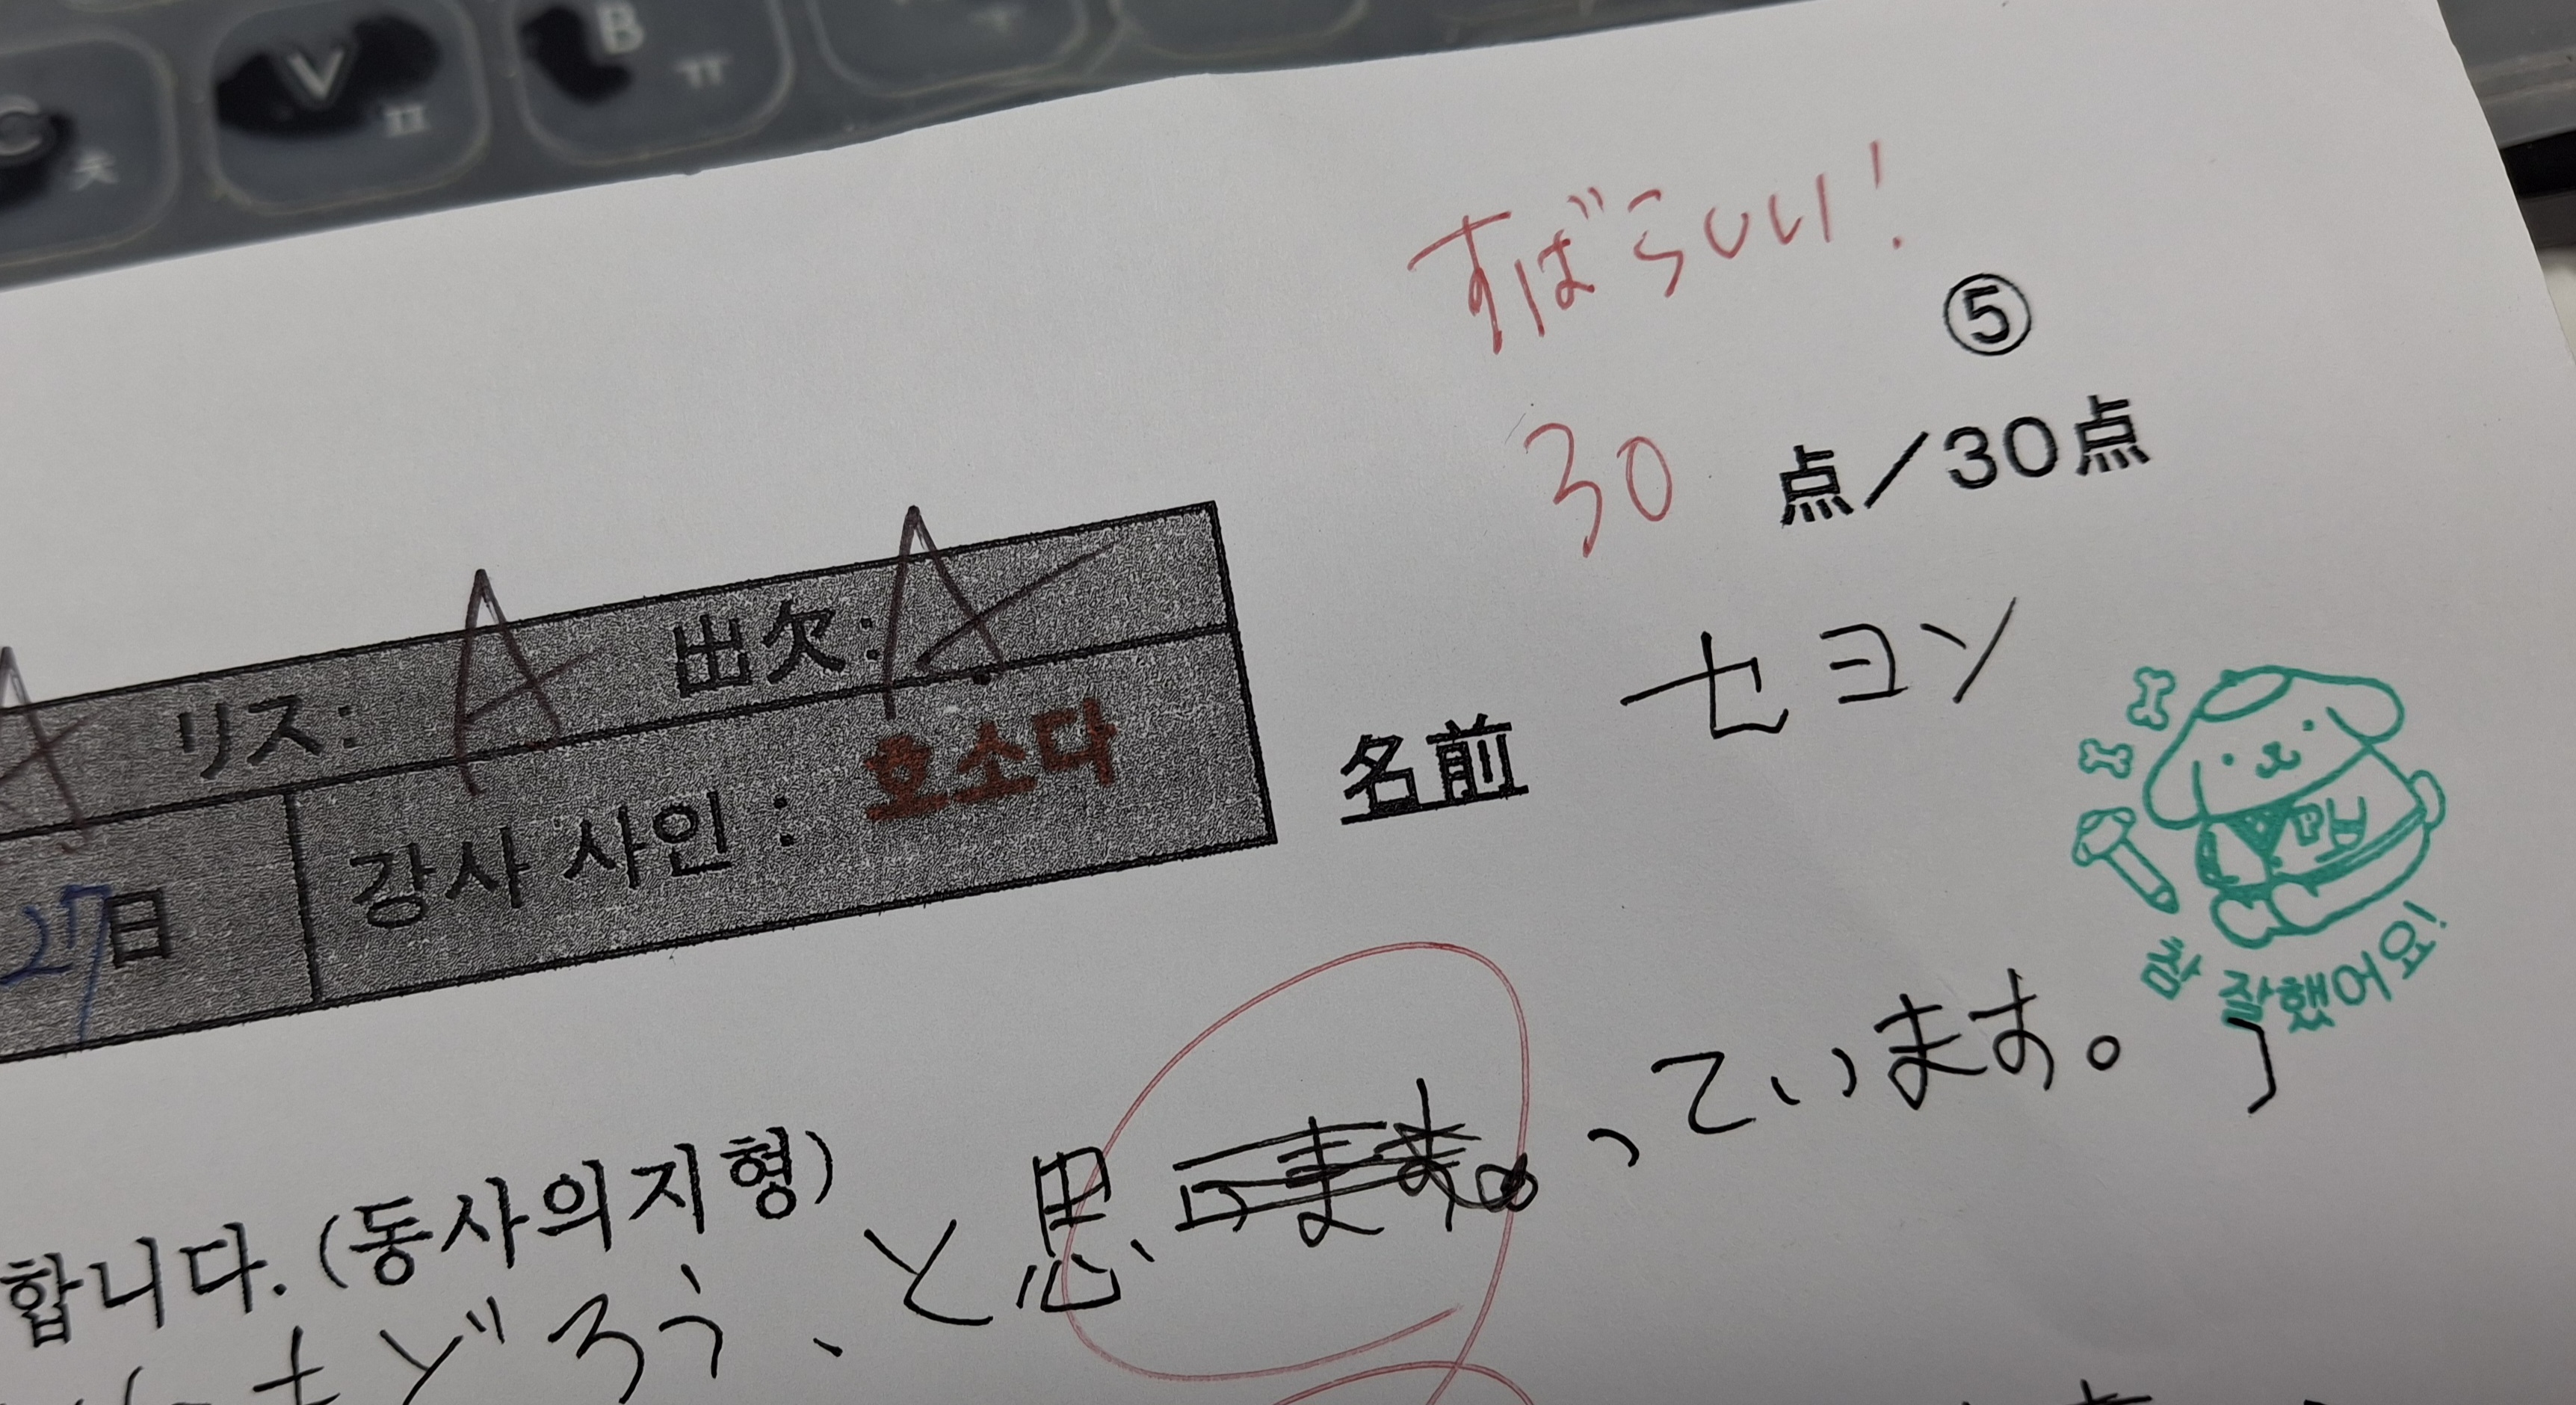 C ㅊ V ㅍ B ㅠ
すばらしい!
⑤
30 点/30点
リス: A 出欠: A
名前 セヨン
27日 강사 사인 : 호소다
참 잘했어요!
합니다. (동사의지형)
もどろう、と思います。っています。」